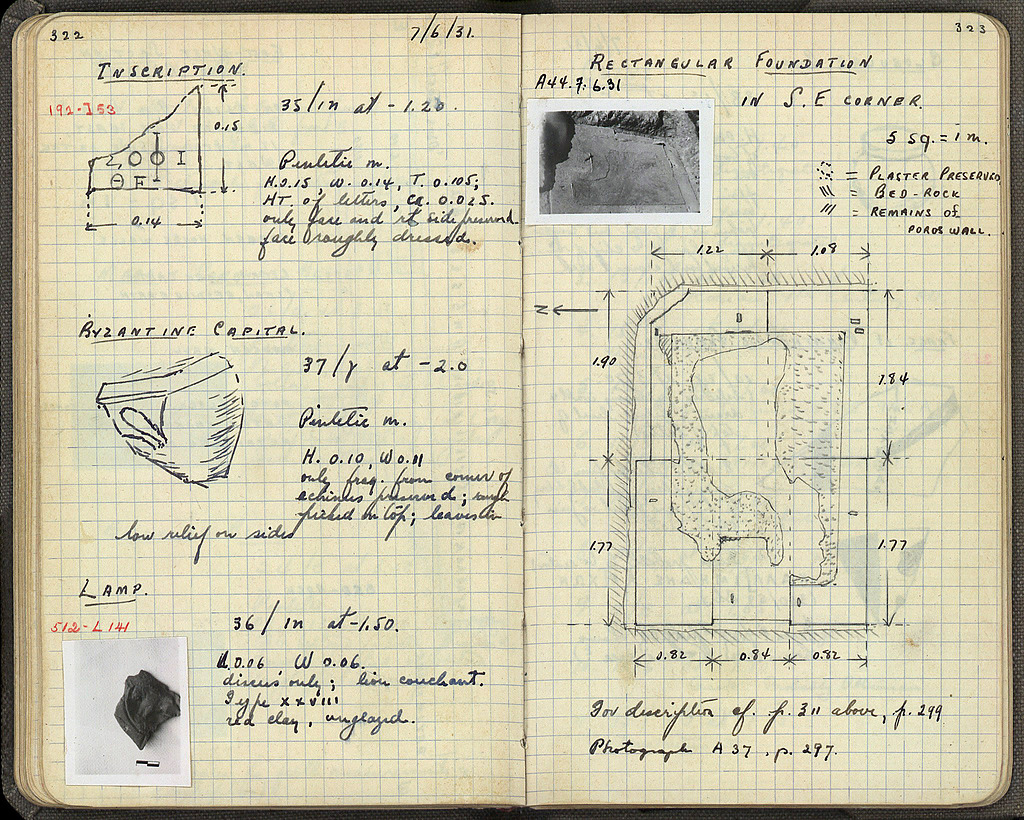 322
7/6/31.
INSCRIPTION.
192-I 53
35/ in at - 1.20.
0.15
Ο Φ Ι
Θ Ε
0.14
Pentelic m.
H. 0.15, W. 0.14, T. 0.105;
HT. of letters, ca. 0.025.
only face and rt side preserved
face roughly dressed.
BYZANTINE CAPITAL.
37/ at -2.0
Pentelic m.
H. 0.10, W 0.11
only frag. from corner of
echinus preserved; rough
picked on top; leaves in
low relief on sides
LAMP.
512-L 141
36/ in at -1.50.
L 0.06 W 0.06.
discus only; lion couchant.
Type XXVIII
red clay, unglazed.
323
RECTANGULAR FOUNDATION
A44.7.6.31
IN S.E CORNER.
5 sq. = 1 m.
= PLASTER PRESERVED
= BED-ROCK
= REMAINS of
POROS WALL.
1.22 1.08
N
1.90
1.84
1.77
1.77
0.82 0.84 0.82
For description cf. p. 311 above, p. 299
Photograph A 37, p. 297.